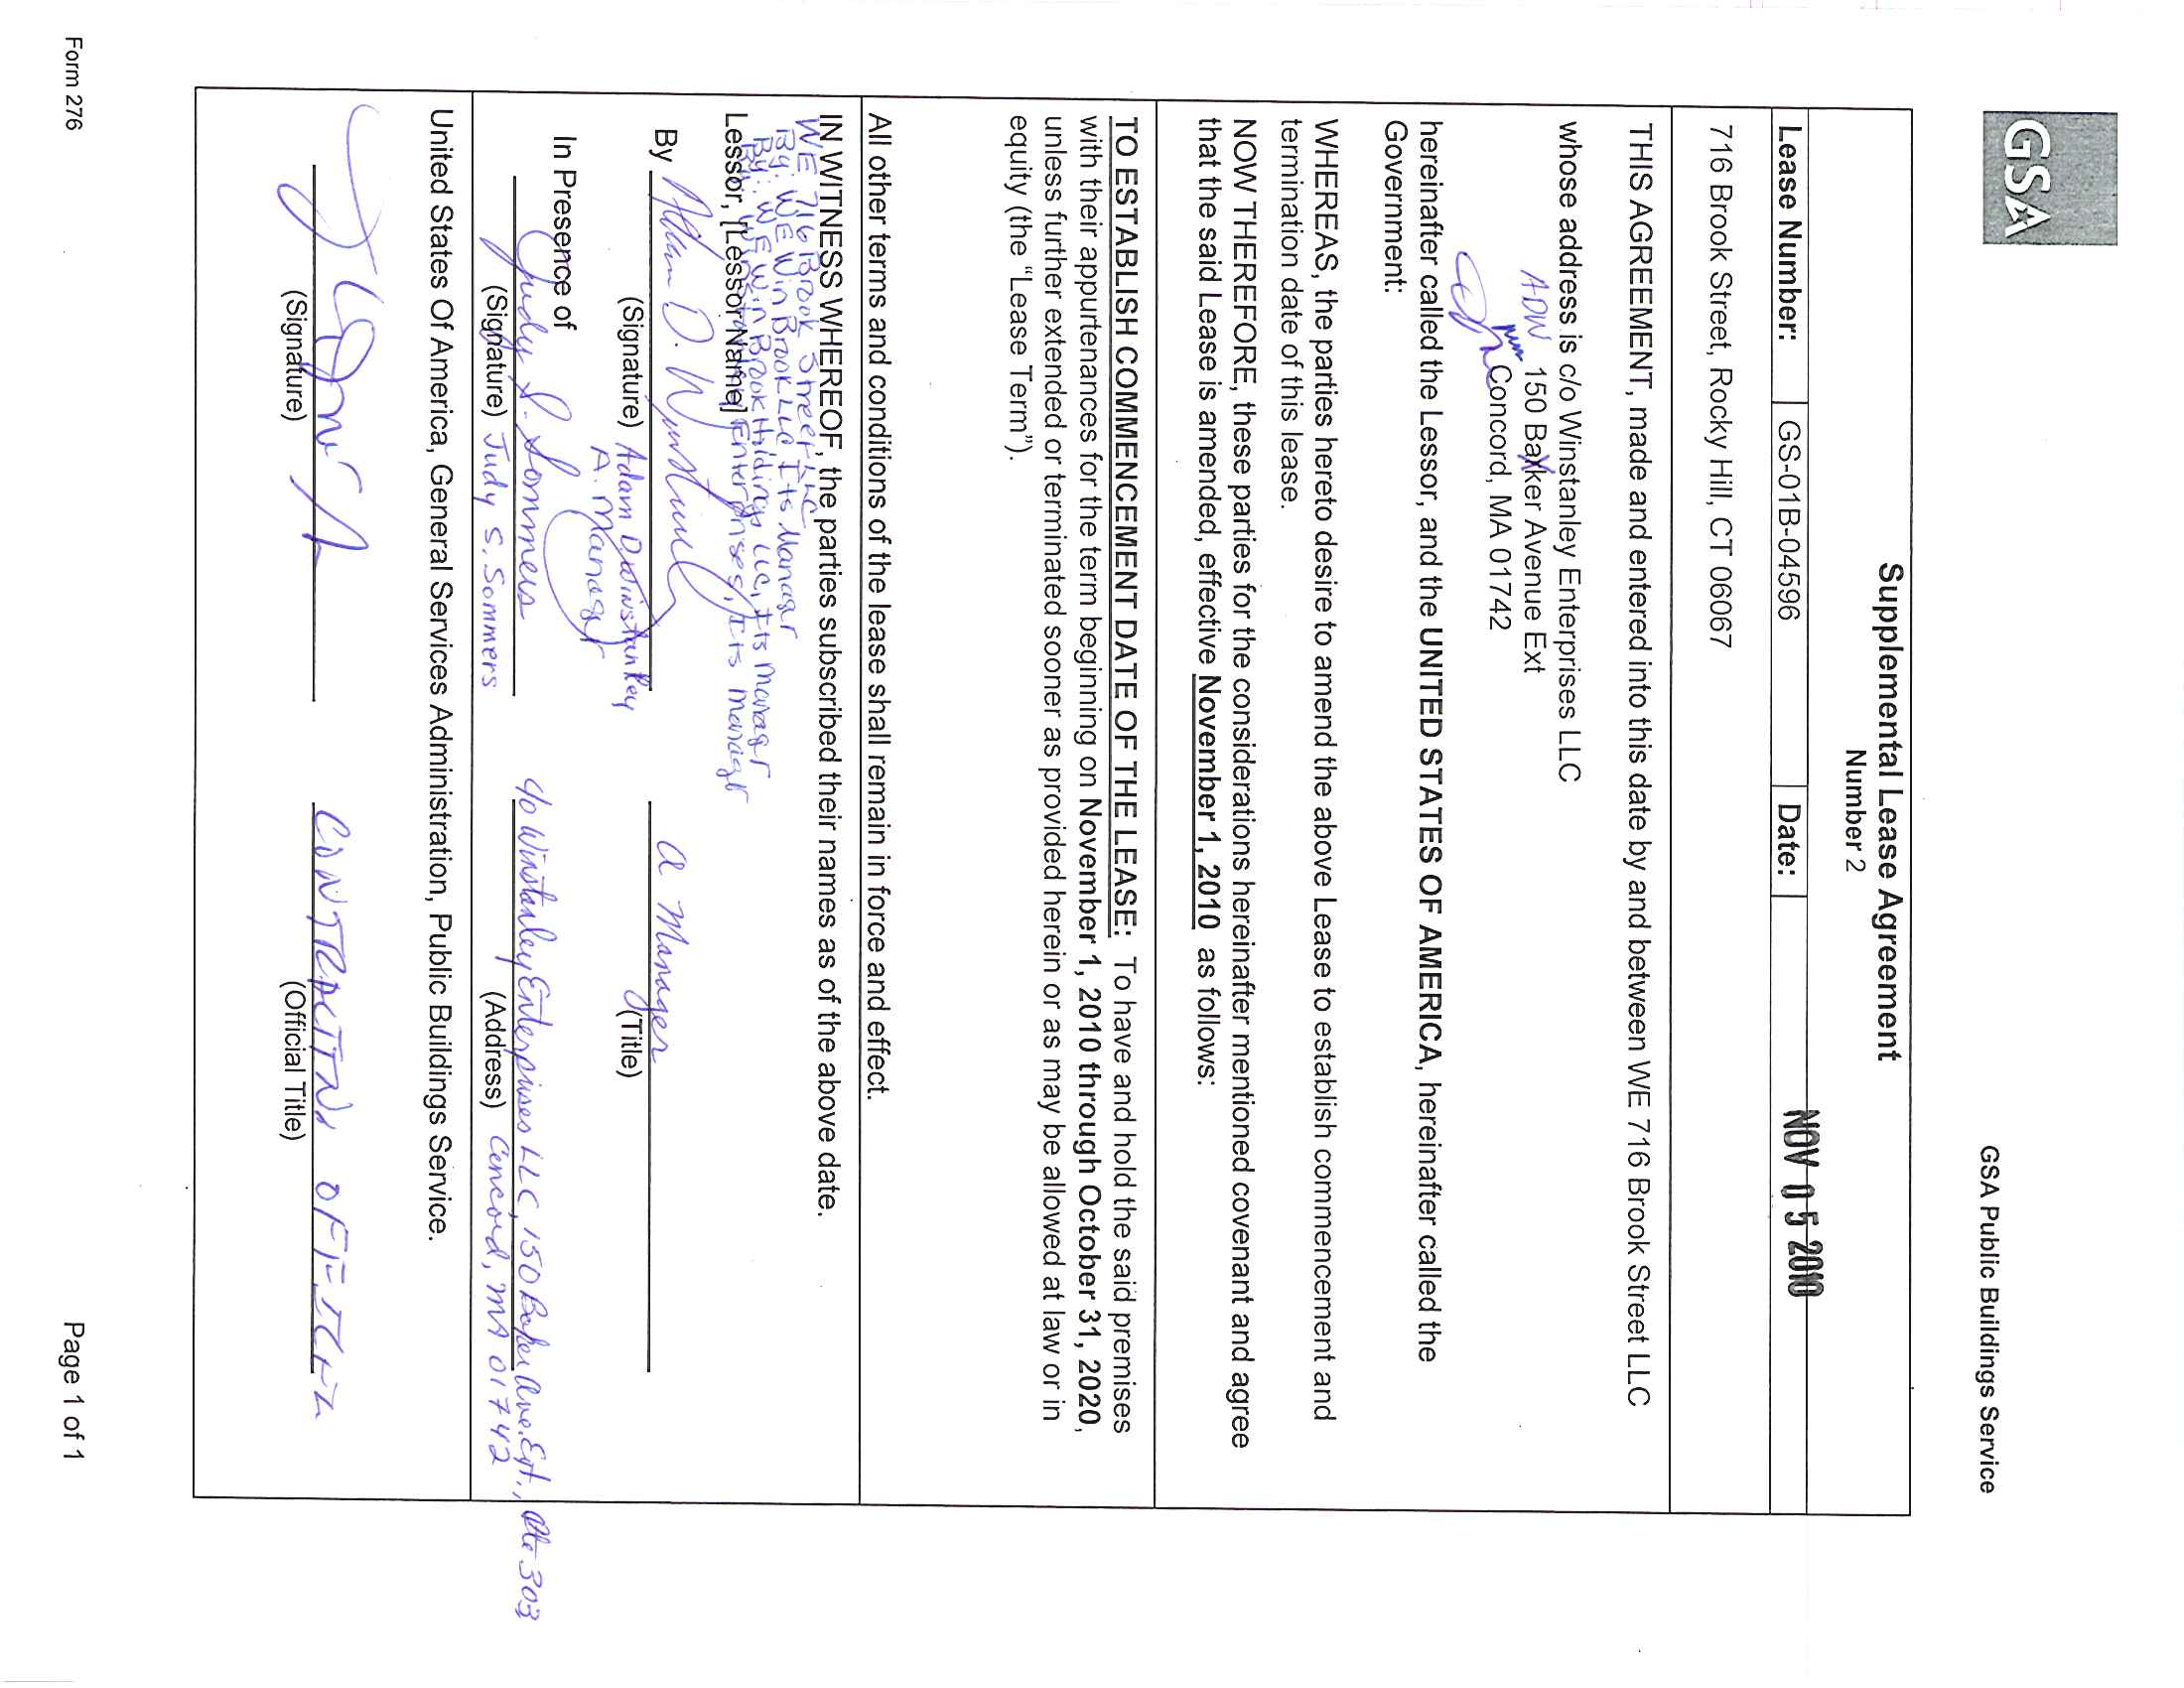 GSA
GSA Public Buildings Service
Supplemental Lease Agreement
Number 2
Lease Number: GS-01B-04596 Date: NOV 05 2010
716 Brook Street, Rocky Hill, CT 06067
THIS AGREEMENT, made and entered into this date by and between WE 716 Brook Street LLC
whose address is c/o Winstanley Enterprises LLC
ADW 150 Baxker Avenue Ext
Concord, MA 01742
hereinafter called the Lessor, and the UNITED STATES OF AMERICA, hereinafter called the
Government:
WHEREAS, the parties hereto desire to amend the above Lease to establish commencement and
termination date of this lease.
NOW THEREFORE, these parties for the considerations hereinafter mentioned covenant and agree
that the said Lease is amended, effective November 1, 2010 as follows:
TO ESTABLISH COMMENCEMENT DATE OF THE LEASE: To have and hold the said premises
with their appurtenances for the term beginning on November 1, 2010 through October 31, 2020,
unless further extended or terminated sooner as provided herein or as may be allowed at law or in
equity (the “Lease Term”).
All other terms and conditions of the lease shall remain in force and effect.
IN WITNESS WHEREOF, the parties subscribed their names as of the above date.
WE 716 Brook Street LLC
By: WE Win Brook LLC Its Manager
By: WE Win Brook Holdings LLC, Its Manager
By: Winstanley Enterprises, Its Manager
Lessor, [Lessor Name]
By Adam D. Winstanley a Manager
(Signature) Adam D Winstanley (Title)
A. Manager
In Presence of
Judy S. Sommers c/o Winstanley Enterprises LLC, 150 Baker Ave. Ext., Ste 303
(Signature) Judy S. Sommers (Address) Concord, MA 01742
United States Of America, General Services Administration, Public Buildings Service.
CONTRACTING OFFICER
(Signature) (Official Title)
Form 276
Page 1 of 1